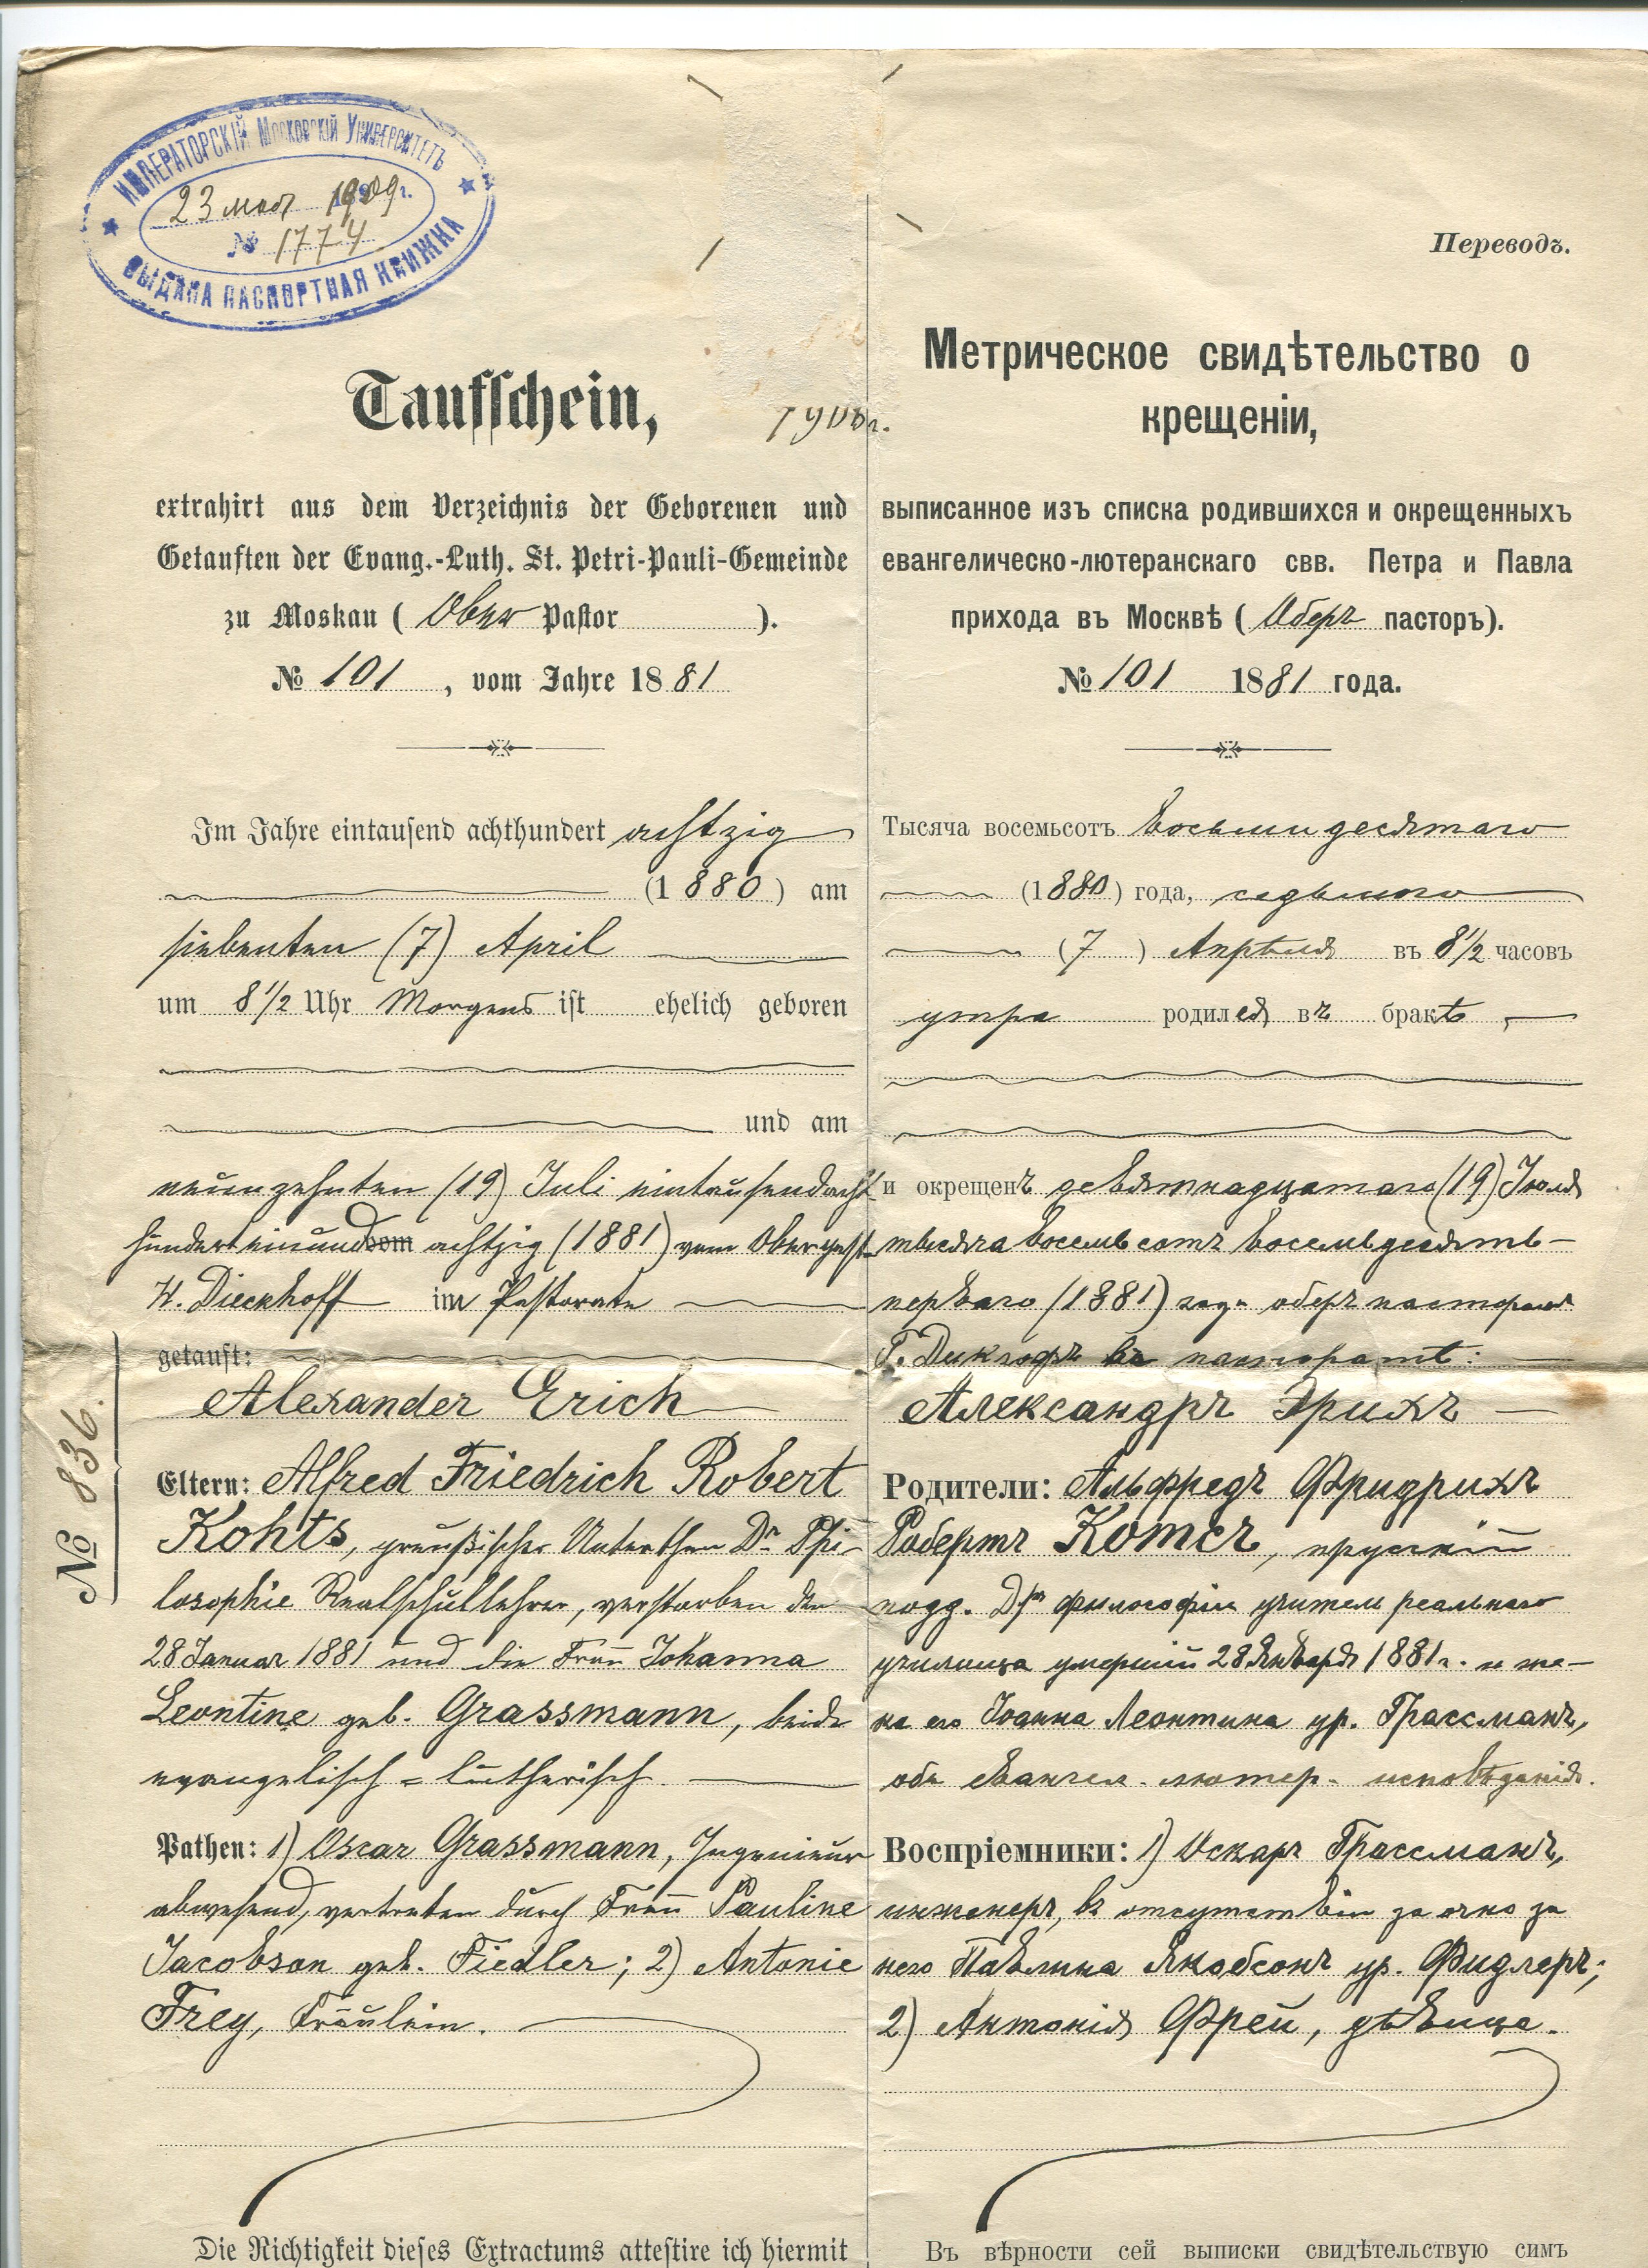 ИМПЕРАТОРСКІЙ МОСКОВСКІЙ УНИВЕРСИТЕТЪ
23 мая 1909 г.
№ 1774
ВЫДАНА ПАСПОРТНАЯ КНИЖКА
Taufschein,
extrahirt aus dem Verzeichnis der Geborenen und
Getauften der Evang.-Luth. St. Petri-Pauli-Gemeinde
zu Moskau (Ober Pastor ).
№ 101, vom Jahre 1881
Im Jahre eintausend achthundert achtzig
(1880) am
siebenten (7) April
um 8½ Uhr Morgens ist ehelich geboren
und am
neunzehnten (19) Juli eintausendacht
hundert einund achtzig (1881) vom Oberpast.
H. Dieckhoff im Pastorate
getauft:
Alexander Erich
Eltern: Alfred Friedrich Robert
Kohts, preußischer Unterthan Dr. Phi-
losophie Realschullehrer, verstorben den
28 Januar 1881 und die Frau Johanna
Leontine geb. Grassmann, beide
evangelisch = lutherisch.
Pathen: 1) Oscar Grassmann, Ingenieur
abwesend, vertreten durch Frau Pauline
Jacobson geb. Fiedler; 2) Antonie
Frey, Fräulein.
Die Richtigkeit dieses Extractums attestire ich hiermit
№ 836.
Переводъ.
Метрическое свидѣтельство о
крещеніи,
выписанное изъ списка родившихся и окрещенныхъ
евангелическо-лютеранскаго свв. Петра и Павла
прихода въ Москвѣ (Оберъ пасторъ).
№ 101 1881 года.
Тысяча восемьсотъ восьмидесятаго
(1880) года, седьмого
(7) Апрѣля въ 8½ часовъ
утра родился въ бракѣ,
и окрещенъ девятнадцатаго (19) Іюля
тысяча восемьсотъ восемьдесятъ-
перваго (1881) года оберъ пасторомъ
Г. Дикгофъ въ пасторатѣ:
Александръ Эрихъ
Родители: Альфредъ Фридрихъ
Робертъ Котсъ, прусскій
подд. Дръ философіи учитель реальнаго
училища умершій 28 Января 1881 г. и же-
на его Іоанна Леонтина ур. Грассманъ,
оба евангел. лютер. исповѣданія.
Воспріемники: 1) Оскаръ Грассманъ,
инженеръ, въ отсутствіи заочно за
него Павлина Якобсонъ ур. Фидлеръ;
2) Антонія Фрей, дѣвица.
Въ вѣрности сей выписки свидѣтельствую симъ